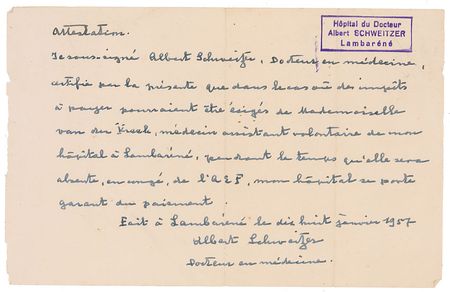 Attestation.
Hôpital du Docteur
Albert SCHWEITZER
Lambaréné
Je soussigné Albert Schweitzer, Docteur en médecine,
certifie par la présente que dans le cas où des impôts
à payer pourraient être exigés de Mademoiselle
van der Kreek, médecin assistant volontaire de mon
hôpital à Lambaréné, pendant le temps qu'elle sera
absente, en congé, de l'AEF, mon hôpital se porte
garant du paiement.
Fait à Lambaréné le dix huit janvier 1957
Albert Schweitzer
Docteur en médecine.